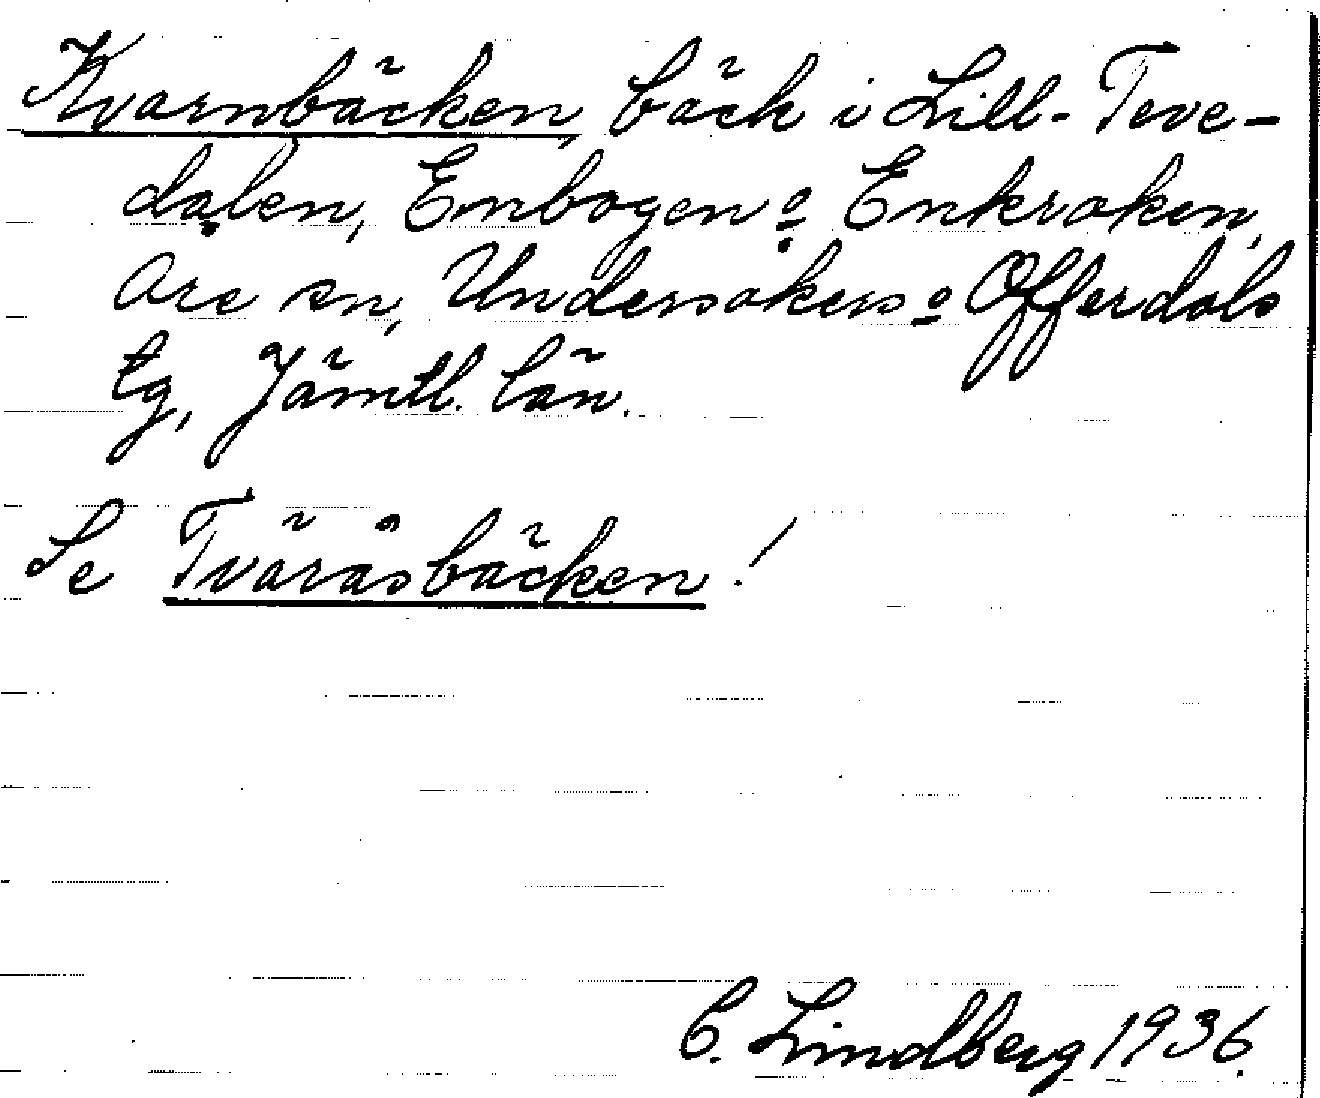 Kvarnbäcken, bäck i Lill-Teve-
dalen, Enbogen o Enkroken,
Åre sn, Undersåkers o Offerdals
tg, Jämtl. län.
Se Tväråsbäcken!
C. Lindberg 1936.